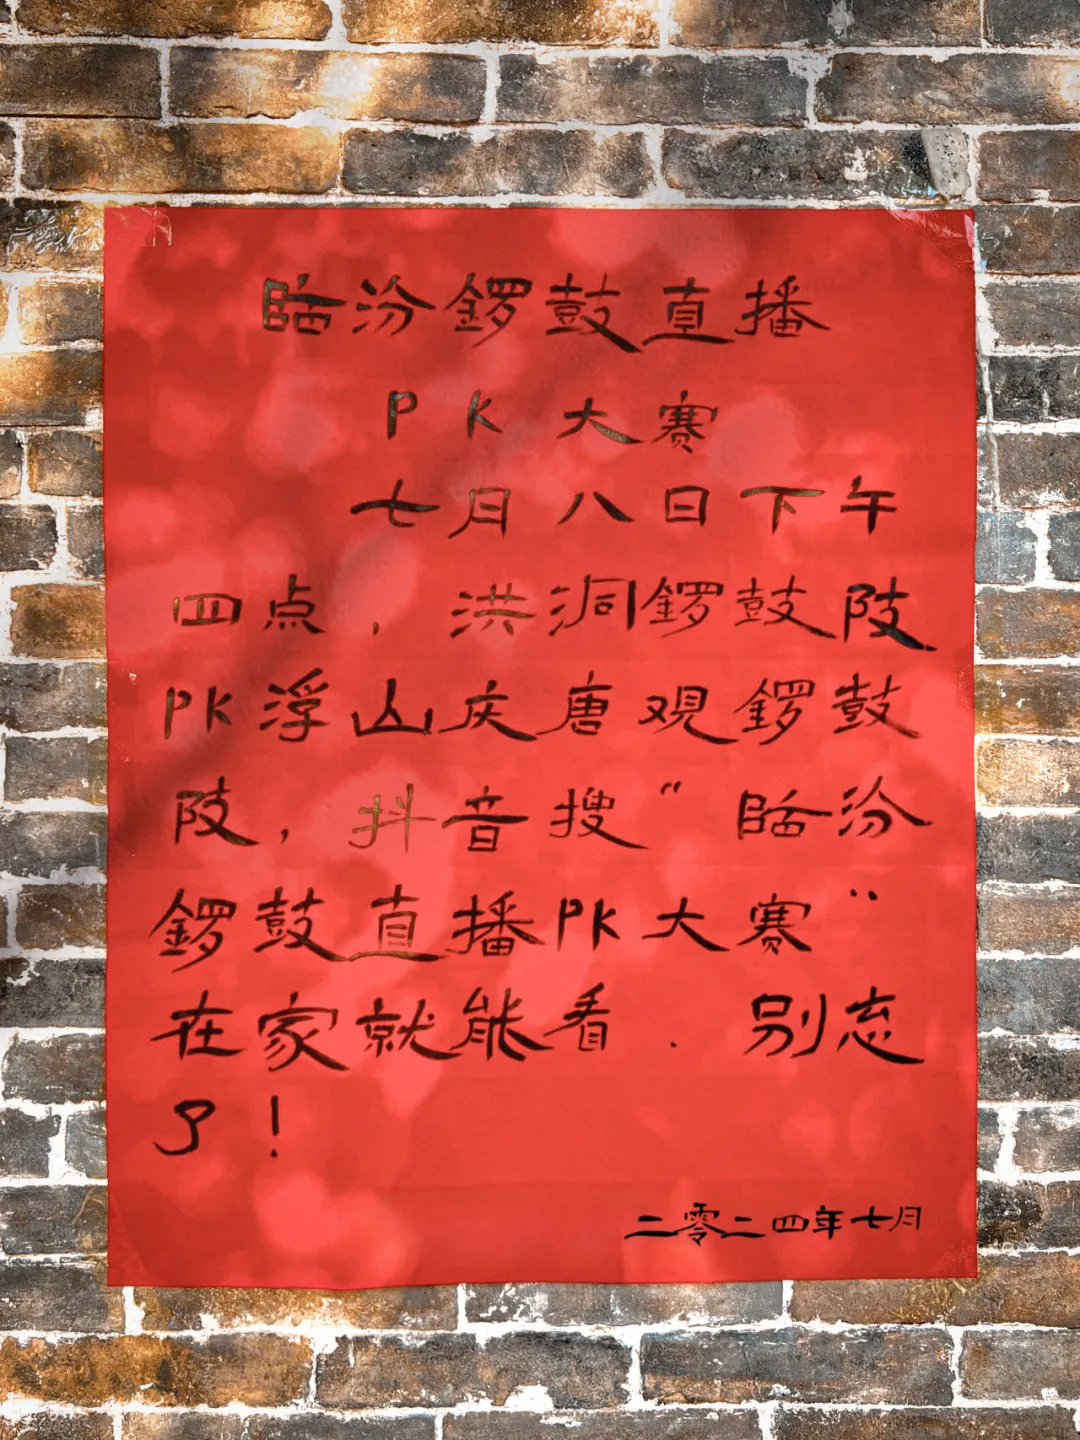 临汾锣鼓直播
PK大赛
七月八日下午
四点，洪洞锣鼓队
PK浮山庆唐观锣鼓
队，抖音搜“临汾
锣鼓直播PK大赛”
在家就能看．别忘
了！
二零二四年七月